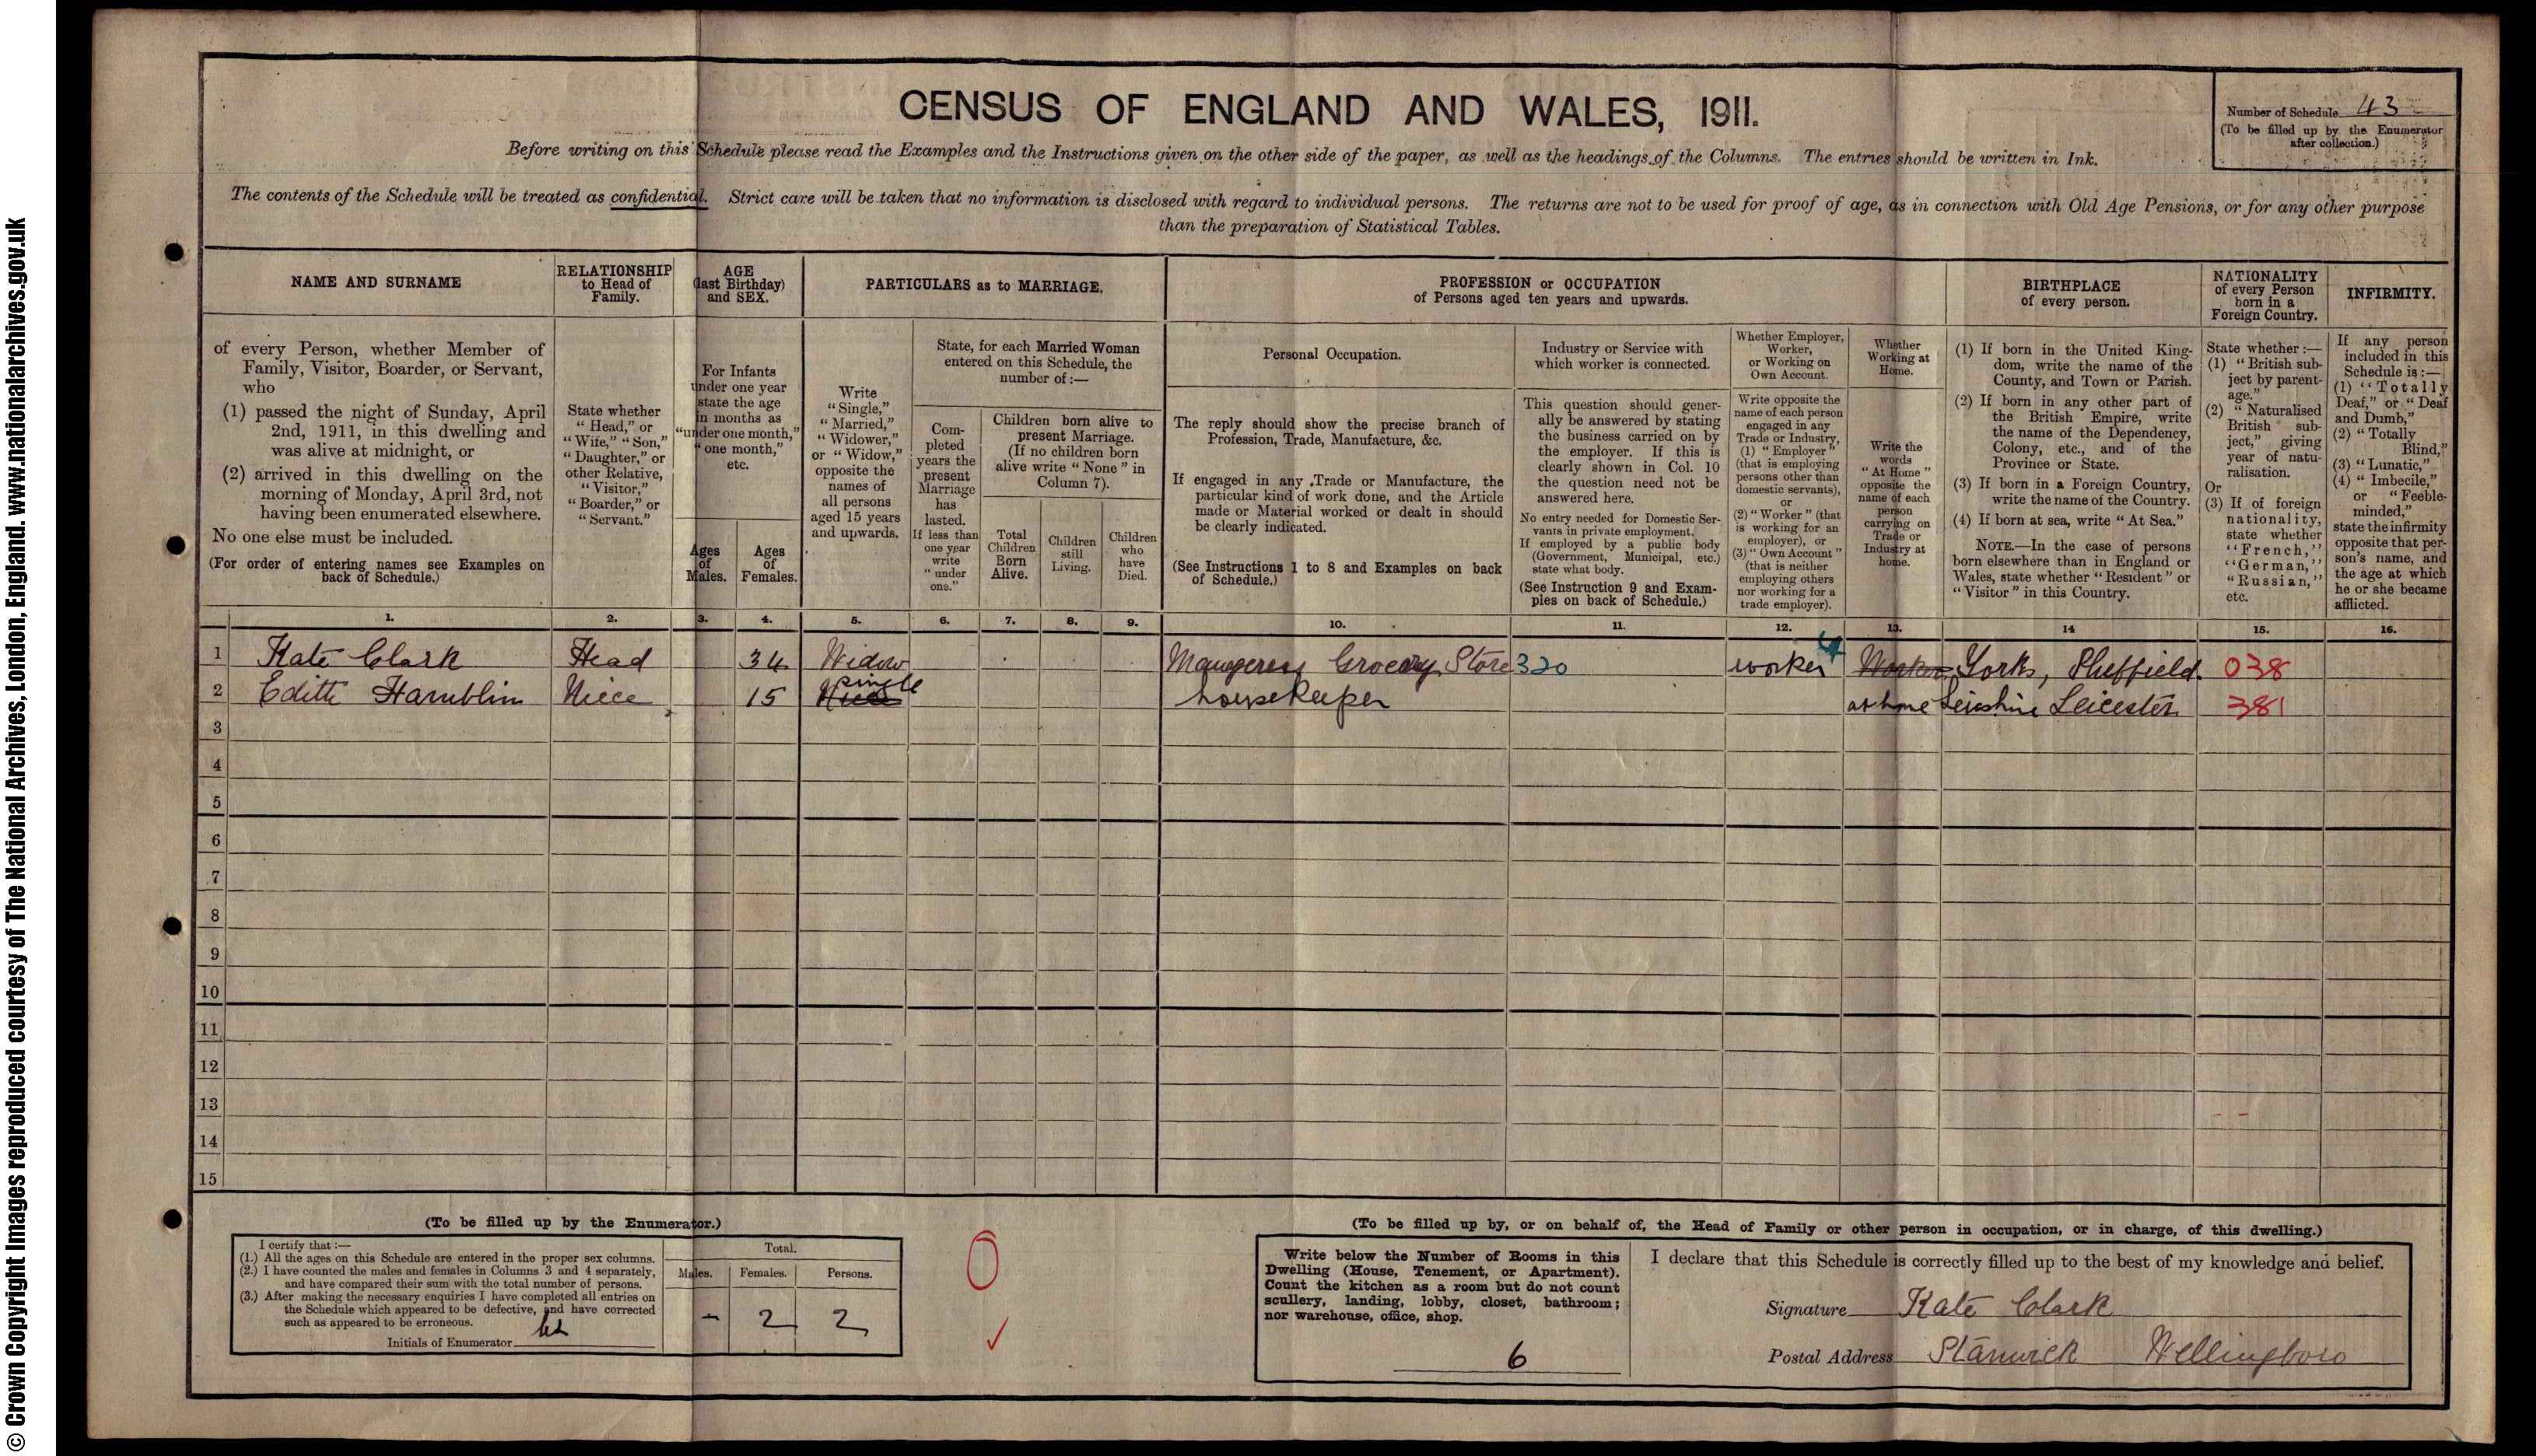 © Crown Copyright Images reproduced courtesy of The National Archives, London, England. www.nationalarchives.gov.uk
CENSUS OF ENGLAND AND WALES, 1911.
Number of Schedule 43
(To be filled up by the Enumerator
after collection.)
Before writing on this Schedule please read the Examples and the Instructions given on the other side of the paper, as well as the headings of the Columns. The entries should be written in Ink.
The contents of the Schedule will be treated as confidential. Strict care will be taken that no information is disclosed with regard to individual persons. The returns are not to be used for proof of age, as in connection with Old Age Pensions, or for any other purpose
than the preparation of Statistical Tables.
NAME AND SURNAME
of every Person, whether Member of
Family, Visitor, Boarder, or Servant,
who
(1) passed the night of Sunday, April
2nd, 1911, in this dwelling and
was alive at midnight, or
(2) arrived in this dwelling on the
morning of Monday, April 3rd, not
having been enumerated elsewhere.
No one else must be included.
(For order of entering names see Examples on
back of Schedule.)
RELATIONSHIP
to Head of
Family.
State whether
"Head," or
"Wife," "Son,"
"Daughter," or
other Relative,
"Visitor,"
"Boarder," or
"Servant."
AGE
(last Birthday)
and SEX.
For Infants
under one year
state the age
in months as
"under one month,"
"one month,"
etc.
Ages
of
Males.
Ages
of
Females.
PARTICULARS as to MARRIAGE.
Write
"Single,"
"Married,"
"Widower,"
or "Widow,"
opposite the
names of
all persons
aged 15 years
and upwards.
State, for each Married Woman
entered on this Schedule, the
number of:—
Com-
pleted
years the
present
Marriage
has
lasted.
If less than
one year
write
"under
one."
Children born alive to
present Marriage.
(If no children born
alive write "None" in
Column 7).
Total
Children
Born
Alive.
Children
still
Living.
Children
who
have
Died.
PROFESSION or OCCUPATION
of Persons aged ten years and upwards.
Personal Occupation.
The reply should show the precise branch of
Profession, Trade, Manufacture, &c.
If engaged in any Trade or Manufacture, the
particular kind of work done, and the Article
made or Material worked or dealt in should
be clearly indicated.
(See Instructions 1 to 8 and Examples on back
of Schedule.)
Industry or Service with
which worker is connected.
This question should gener-
ally be answered by stating
the business carried on by
the employer. If this is
clearly shown in Col. 10
the question need not be
answered here.
No entry needed for Domestic Ser-
vants in private employment.
If employed by a public body
(Government, Municipal, etc.)
state what body.
(See Instruction 9 and Exam-
ples on back of Schedule.)
Whether Employer,
Worker,
or Working on
Own Account.
Write opposite the
name of each person
engaged in any
Trade or Industry,
(1) "Employer"
(that is employing
persons other than
domestic servants),
or
(2) "Worker" (that
is working for an
employer), or
(3) "Own Account"
(that is neither
employing others
nor working for a
trade employer).
Whether
Working at
Home.
Write the
words
"At Home"
opposite the
name of each
person
carrying on
Trade or
Industry at
home.
BIRTHPLACE
of every person.
(1) If born in the United King-
dom, write the name of the
County, and Town or Parish.
(2) If born in any other part of
the British Empire, write
the name of the Dependency,
Colony, etc., and of the
Province or State.
(3) If born in a Foreign Country,
write the name of the Country.
(4) If born at sea, write "At Sea."
NOTE.—In the case of persons
born elsewhere than in England or
Wales, state whether "Resident" or
"Visitor" in this Country.
NATIONALITY
of every Person
born in a
Foreign Country.
State whether:—
(1) "British sub-
ject by parent-
age,"
(2) "Naturalised
British sub-
ject," giving
year of natu-
ralisation.
Or
(3) If of foreign
nationality,
state whether
"French,"
"German,"
"Russian,"
etc.
INFIRMITY.
If any person
included in this
Schedule is:—
(1) "Totally
Deaf," or "Deaf
and Dumb,"
(2) "Totally
Blind,"
(3) "Lunatic,"
(4) "Imbecile,"
or "Feeble-
minded,"
state the infirmity
opposite that per-
son's name, and
the age at which
he or she became
afflicted.
1. 2. 3. 4. 5. 6. 7. 8. 9. 10. 11. 12. 13. 14 15. 16.
1 Kate Clark Head 34 Widow Manageress Grocery Store 320 worker 4 Worker Yorks, Sheffield. 038
single
2 Edith Hamblin Niece 15 Niece housekeeper at home Leicshire Leicester 381
3
4
5
6
7
8
9
10
11
12
13
14
15
(To be filled up by the Enumerator.)
I certify that:—
(1.) All the ages on this Schedule are entered in the proper sex columns.
(2.) I have counted the males and females in Columns 3 and 4 separately,
and have compared their sum with the total number of persons.
(3.) After making the necessary enquiries I have completed all entries on
the Schedule which appeared to be defective, and have corrected
such as appeared to be erroneous.
Initials of Enumerator
Total.
Males. Females. Persons.
– 2 2
0
✓
(To be filled up by, or on behalf of, the Head of Family or other person in occupation, or in charge, of this dwelling.)
Write below the Number of Rooms in this
Dwelling (House, Tenement, or Apartment).
Count the kitchen as a room but do not count
scullery, landing, lobby, closet, bathroom;
nor warehouse, office, shop.
6
I declare that this Schedule is correctly filled up to the best of my knowledge and belief.
Signature Kate Clark
Postal Address Stanwick Wellingboro